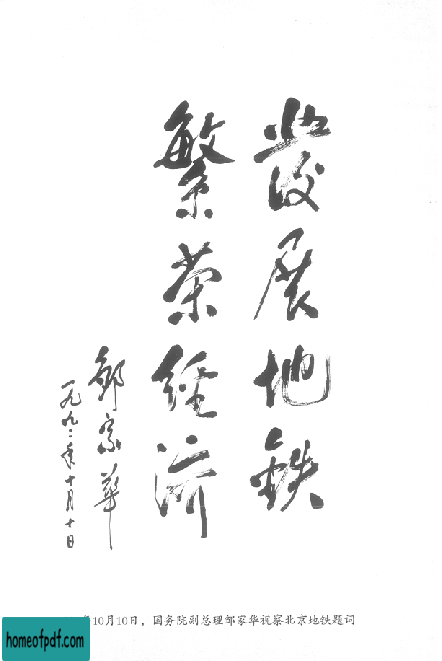 發展地鉄
繁荣经济
邹家华
一九九二年十月十日
年10月10日，国务院副总理邹家华视察北京地铁题词
homeofpdf.com